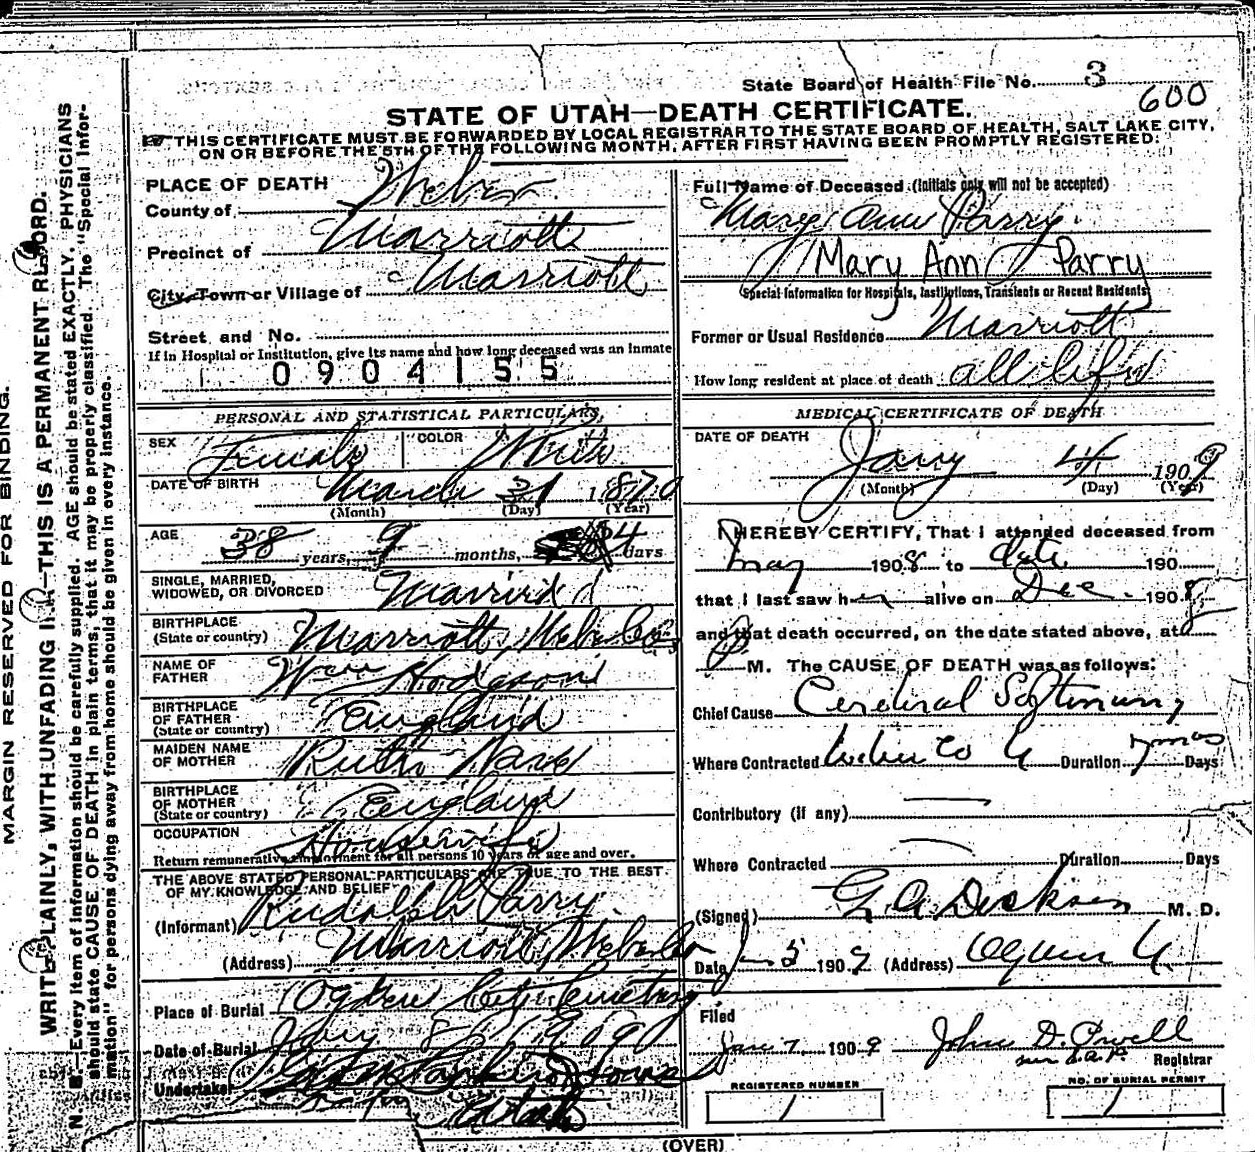 State Board of Health File No. 3
600
STATE OF UTAH—DEATH CERTIFICATE.
THIS CERTIFICATE MUST BE FORWARDED BY LOCAL REGISTRAR TO THE STATE BOARD OF HEALTH, SALT LAKE CITY,
ON OR BEFORE THE 5TH OF THE FOLLOWING MONTH, AFTER FIRST HAVING BEEN PROMPTLY REGISTERED.
MARGIN RESERVED FOR BINDING.
WRITE PLAINLY, WITH UNFADING INK—THIS IS A PERMANENT RECORD.
N B.—Every item of information should be carefully supplied. AGE should be stated EXACTLY. PHYSICIANS
should state CAUSE OF DEATH in plain terms, that it may be properly classified. The "Special Infor-
mation" for persons dying away from home should be given in every instance.
PLACE OF DEATH
County of Weber
Precinct of Marriott
City, Town or Village of Marriott
Street and No.
If in Hospital or Institution, give its name and how long deceased was an inmate
0904155
Full Name of Deceased (Initials only will not be accepted)
Mary Ann Parry
Mary Ann Parry
Special Information for Hospitals, Institutions, Transients or Recent Residents
Former or Usual Residence Marriott
How long resident at place of death all life
PERSONAL AND STATISTICAL PARTICULARS,
SEX Female COLOR White
DATE OF BIRTH March 31 1870
(Month) (Day) (Year)
AGE 38 years, 9 months, 4 days
SINGLE, MARRIED,
WIDOWED, OR DIVORCED Married
BIRTHPLACE
(State or country) Marriott, Weber Co
NAME OF
FATHER Wm Hodgson
BIRTHPLACE
OF FATHER
(State or country) England
MAIDEN NAME
OF MOTHER Ruth
BIRTHPLACE
OF MOTHER
(State or country) England
OCCUPATION Housewife
Return remunerative employment for all persons 10 years of age and over.
THE ABOVE STATED PERSONAL PARTICULARS ARE TRUE TO THE BEST
OF MY KNOWLEDGE AND BELIEF
(Informant) Rudolph Parry
(Address) Marriott, Weber Co
Place of Burial Ogden City Cemetery
Date of Burial Jany 8 1909
Undertaker
Utah
MEDICAL CERTIFICATE OF DEATH
DATE OF DEATH
Jany 4 1909
(Month) (Day) (Year)
I HEREBY CERTIFY, That I attended deceased from
May 1908 to date 190
that I last saw her alive on Dec. 1908
and that death occurred, on the date stated above, at 8
P M. The CAUSE OF DEATH was as follows:
Chief Cause Cerebral Softening
Where Contracted Weber Co U Duration 7 mos Days
Contributory (if any)
Where Contracted Duration Days
(Signed) G. A. Dickson M. D.
Date Jan 5 1909 (Address) Ogden U.
Filed
Jan 7 1909 John D. Powell
Registrar
REGISTERED NUMBER
1
NO. OF BURIAL PERMIT
1
(OVER)